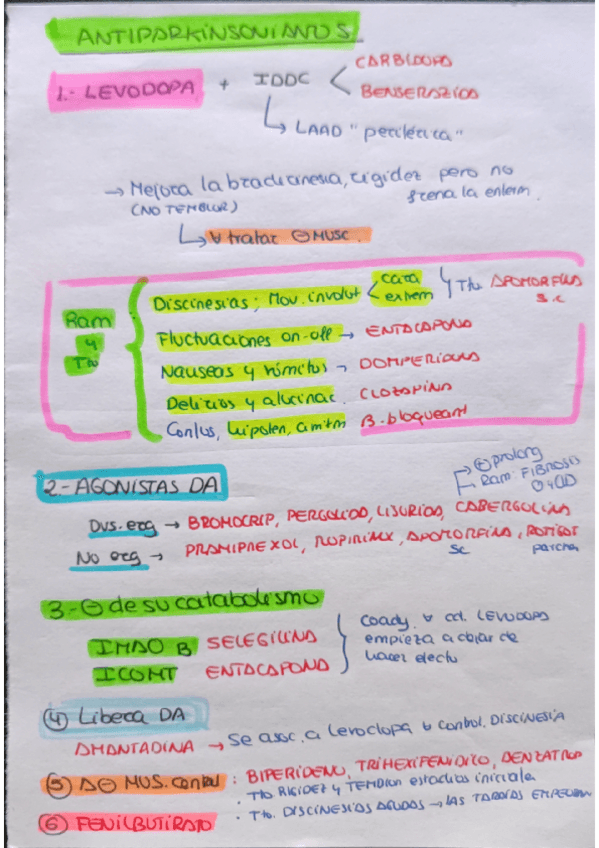 ANTIPARKINSONIANOS
1.- LEVODOPA + IDDC < CARBIDOPA
BENSERAZIDA
↳ LAAD "periférica"
→ Mejora la bradicinesia, rigidez pero no
(NO TEMBLOR) frena la enferm.
↳ ∀ tratar ⊖ MUSC.
Ram y Tto
Discinesias; Mov. involut < cara
extrem
Tto APOMORFINA
s.c
Fluctuaciones on-off → ENTACAPONA
Nauseas y vómitos → DOMPERIDONA
Delirios y alucinac. CLOZAPINA
Confus, hipoten, arritm B-bloqueant
2.- AGONISTAS DA
→ ⊕ prolong
→ Ram: FIBROSIS
Dvs. erg → BROMOCRIP, PERGOLIDA, LISURIDA, CABERGOLINA
No erg → PRAMIPREXOL, ROPIRINX, APOMORFINA, ROTIGOT
sc parche
3.- ⊖ de su catabolismo
IMAO B SELEGILINA
ICOMT ENTACAPONA
Coady. ∀ cd. LEVODOPA
empieza a dejar de
hacer efecto
④ Libera DA
AMANTADINA → Se asoc. a Levodopa ∀ control. DISCINESIA
⑤ A⊖ MUS. central : BIPERIDENO, TRIHEXIFENIDILO, BENZATROP
· Tto RIGIDEZ y TEMBLOR estadios iniciale
· Tto. DISCINESIAS AGUDAS → LAS TARDÍAS EMPEORAN
⑥ FENILBUTIRATO